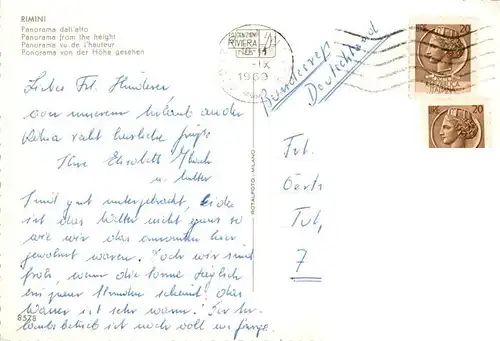 RIMINI
Panorama dall'alto
Panorama from the height
Panorama vu de l'hauteur
Ponorama von der Höhe gesehen
RIVIERA
-IX
1969
20
20
Bundesrep.
Deutschland
Liebes Frl.
von unserem Urlaub an der
Adria recht herzliche Grüße
Ihre Elisabeth
u. Mutter
Sind gut untergebracht, leider
ist das Wetter nicht ganz so
wie wir das ansonsten hier
gewohnt waren. Doch wir sind
froh, wenn die Sonne täglich
ein paar Stunden scheint, das
Wasser ist sehr warm. Der Ur-
laubsbetrieb ist noch voll im Gange.
Frl.
7
ROTALFOTO - MILANO
8578